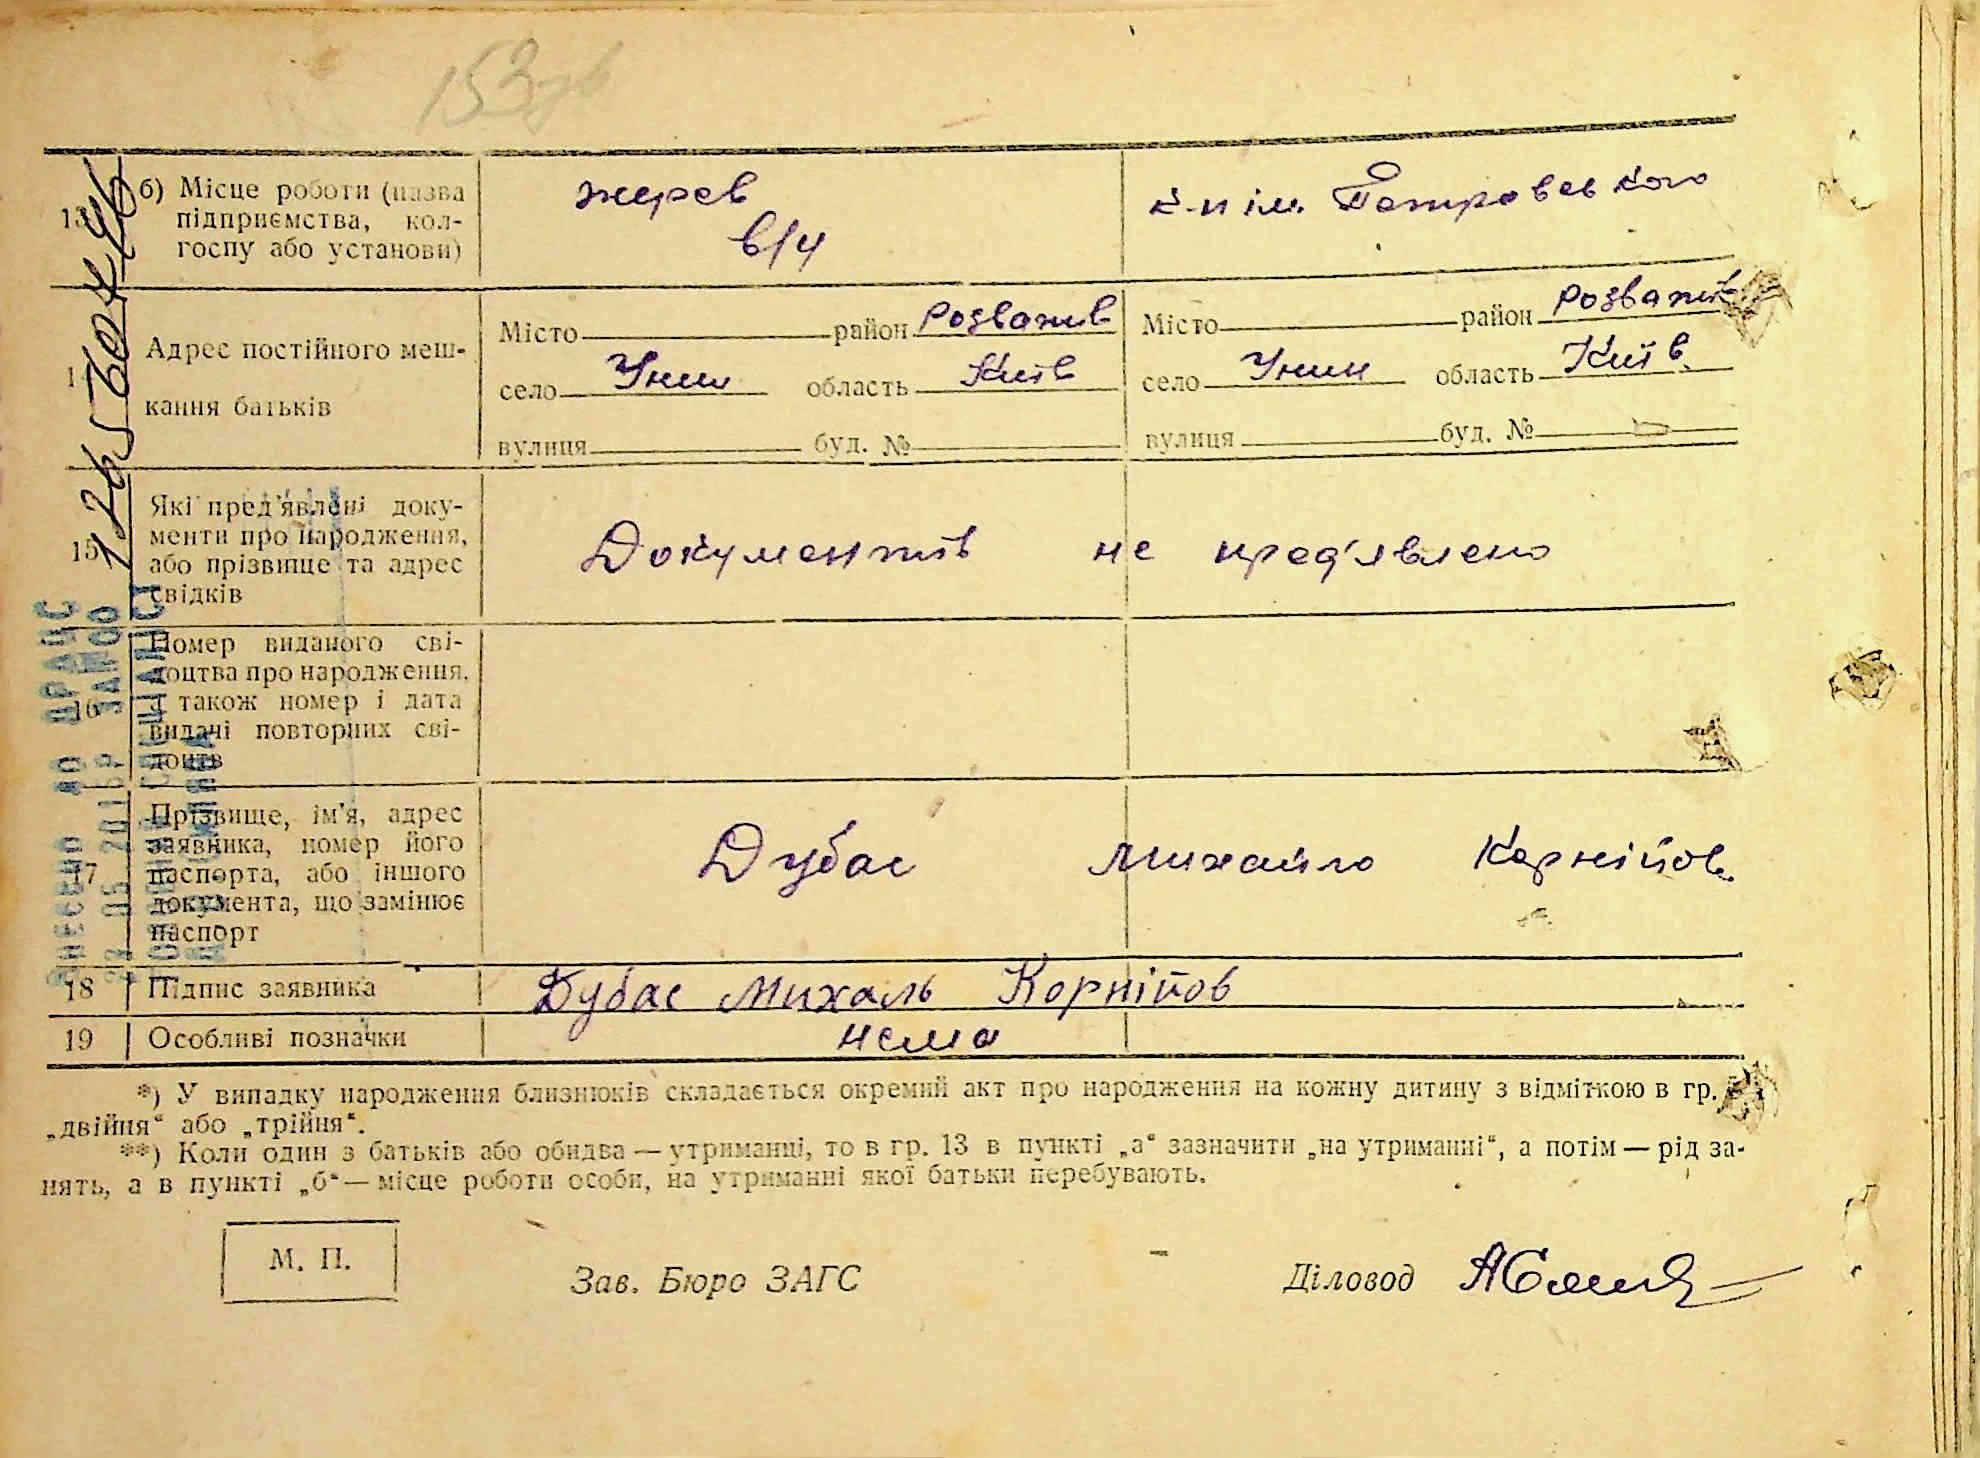 153
13 б) Місце роботи (назва підприємства, колгоспу або установи)
жерев в/ч
к-п ім. Петровського
14 Адрес постійного мешкання батьків
Місто район Розважів
село Унин область Київ
вулиця буд. №
Місто район Розважів
село Унин область Київ
вулиця буд. №
15 Які пред'явлені документи про народження, або прізвище та адрес свідків
Документів не пред'явлено
16 Номер виданого свідоцтва про народження, а також номер і дата видачі повторних свідоцтв
17 Прізвище, ім'я, адрес заявника, номер його паспорта, або іншого документа, що замінює паспорт
Дубас Михайло Корнійов.
18 Підпис заявника
Дубас Михаль Корнійов
19 Особливі позначки
нема
*) У випадку народження близнюків складається окремий акт про народження на кожну дитину з відміткою в гр.
„двійня“ або „трійня“.
**) Коли один з батьків або обидва — утриманці, то в гр. 13 в пункті „а“ зазначити „на утриманні“, а потім — рід за-
нять, а в пункті „б“ — місце роботи особи, на утриманні якої батьки перебувають.
М. П.
Зав. Бюро ЗАГС
Діловод
ВНЕСЕНО ДО ДРАЦС